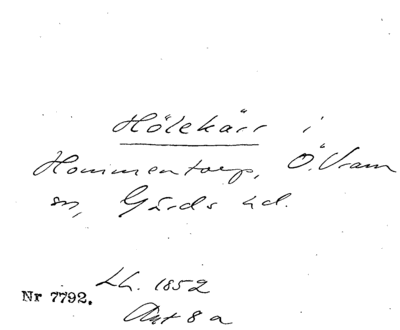 Hölekärr i
Hommentorp, Ö. Vram
sn, Gärds hd.
Lh. 1852
Nr 7792.
Akt 8 a